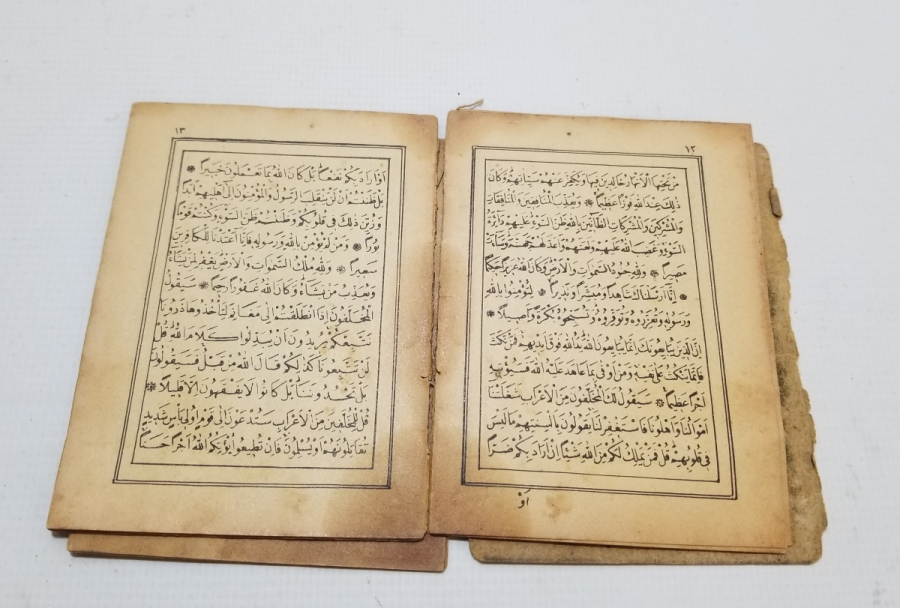 ١٢
مِنْ تَحْتِهَا الْاَنْهَارُ خَالِدِينَ فِيهَا وَيُكَفِّرَ عَنْهُمْ سَيِّاٰتِهِمْ وَكَانَ
ذٰلِكَ عِنْدَ اللّٰهِ فَوْزًا عَظِيمًا ۞ وَيُعَذِّبَ الْمُنَافِقِينَ وَالْمُنَافِقَاتِ
وَالْمُشْرِكِينَ وَالْمُشْرِكَاتِ الظَّانِّينَ بِاللّٰهِ ظَنَّ السَّوْءِ عَلَيْهِمْ دَائِرَةُ
السَّوْءِ وَغَضِبَ اللّٰهُ عَلَيْهِمْ وَلَعَنَهُمْ وَاَعَدَّ لَهُمْ جَهَنَّمَ وَسَاءَتْ
مَصِيرًا ۞ وَلِلّٰهِ جُنُودُ السَّمٰوَاتِ وَالْاَرْضِ وَكَانَ اللّٰهُ عَزِيزًا حَكِيمًا
۞ اِنَّا اَرْسَلْنَاكَ شَاهِدًا وَمُبَشِّرًا وَنَذِيرًا ۞ لِتُؤْمِنُوا بِاللّٰهِ
وَرَسُولِهِ وَتُعَزِّرُوهُ وَتُوَقِّرُوهُ وَتُسَبِّحُوهُ بُكْرَةً وَاَصِيلًا ۞
اِنَّ الَّذِينَ يُبَايِعُونَكَ اِنَّمَا يُبَايِعُونَ اللّٰهَ يَدُ اللّٰهِ فَوْقَ اَيْدِيهِمْ فَمَنْ نَكَثَ
فَاِنَّمَا يَنْكُثُ عَلٰى نَفْسِهِ وَمَنْ اَوْفٰى بِمَا عَاهَدَ عَلَيْهُ اللّٰهَ فَسَيُؤْتِيهِ
اَجْرًا عَظِيمًا ۞ سَيَقُولُ لَكَ الْمُخَلَّفُونَ مِنَ الْاَعْرَابِ شَغَلَتْنَا
اَمْوَالُنَا وَاَهْلُونَا فَاسْتَغْفِرْ لَنَا يَقُولُونَ بِاَلْسِنَتِهِمْ مَا لَيْسَ
فِي قُلُوبِهِمْ قُلْ فَمَنْ يَمْلِكُ لَكُمْ مِنَ اللّٰهِ شَيْئًا اِنْ اَرَادَ بِكُمْ ضَرًّا
اَوْ
١٣
اَوْ اَرَادَ بِكُمْ نَفْعًا بَلْ كَانَ اللّٰهُ بِمَا تَعْمَلُونَ خَبِيرًا ۞
بَلْ ظَنَنْتُمْ اَنْ لَنْ يَنْقَلِبَ الرَّسُولُ وَالْمُؤْمِنُونَ اِلٰى اَهْلِيهِمْ اَبَدًا
وَزُيِّنَ ذٰلِكَ فِي قُلُوبِكُمْ وَظَنَنْتُمْ ظَنَّ السَّوْءِ وَكُنْتُمْ قَوْمًا
بُورًا ۞ وَمَنْ لَمْ يُؤْمِنْ بِاللّٰهِ وَرَسُولِهِ فَاِنَّا اَعْتَدْنَا لِلْكَافِرِينَ
سَعِيرًا ۞ وَلِلّٰهِ مُلْكُ السَّمٰوَاتِ وَالْاَرْضِ يَغْفِرُ لِمَنْ يَشَاءُ
وَيُعَذِّبُ مَنْ يَشَاءُ وَكَانَ اللّٰهُ غَفُورًا رَحِيمًا ۞ سَيَقُولُ
الْمُخَلَّفُونَ اِذَا انْطَلَقْتُمْ اِلٰى مَغَانِمَ لِتَأْخُذُوهَا ذَرُونَا
نَتَّبِعْكُمْ يُرِيدُونَ اَنْ يُبَدِّلُوا كَلَامَ اللّٰهِ قُلْ
لَنْ تَتَّبِعُونَا كَذٰلِكُمْ قَالَ اللّٰهُ مِنْ قَبْلُ فَسَيَقُولُونَ
بَلْ تَحْسُدُونَنَا بَلْ كَانُوا لَا يَفْقَهُونَ اِلَّا قَلِيلًا ۞
قُلْ لِلْمُخَلَّفِينَ مِنَ الْاَعْرَابِ سَتُدْعَوْنَ اِلٰى قَوْمٍ اُولِي بَأْسٍ شَدِيدٍ
تُقَاتِلُونَهُمْ اَوْ يُسْلِمُونَ فَاِنْ تُطِيعُوا يُؤْتِكُمُ اللّٰهُ اَجْرًا حَسَنًا